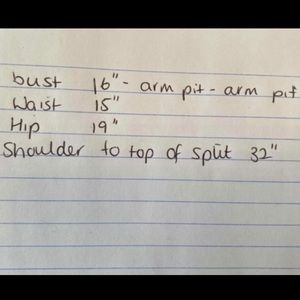 bust 16" - arm pit - arm pit
Waist 15"
Hip 19"
Shoulder to top of split 32"